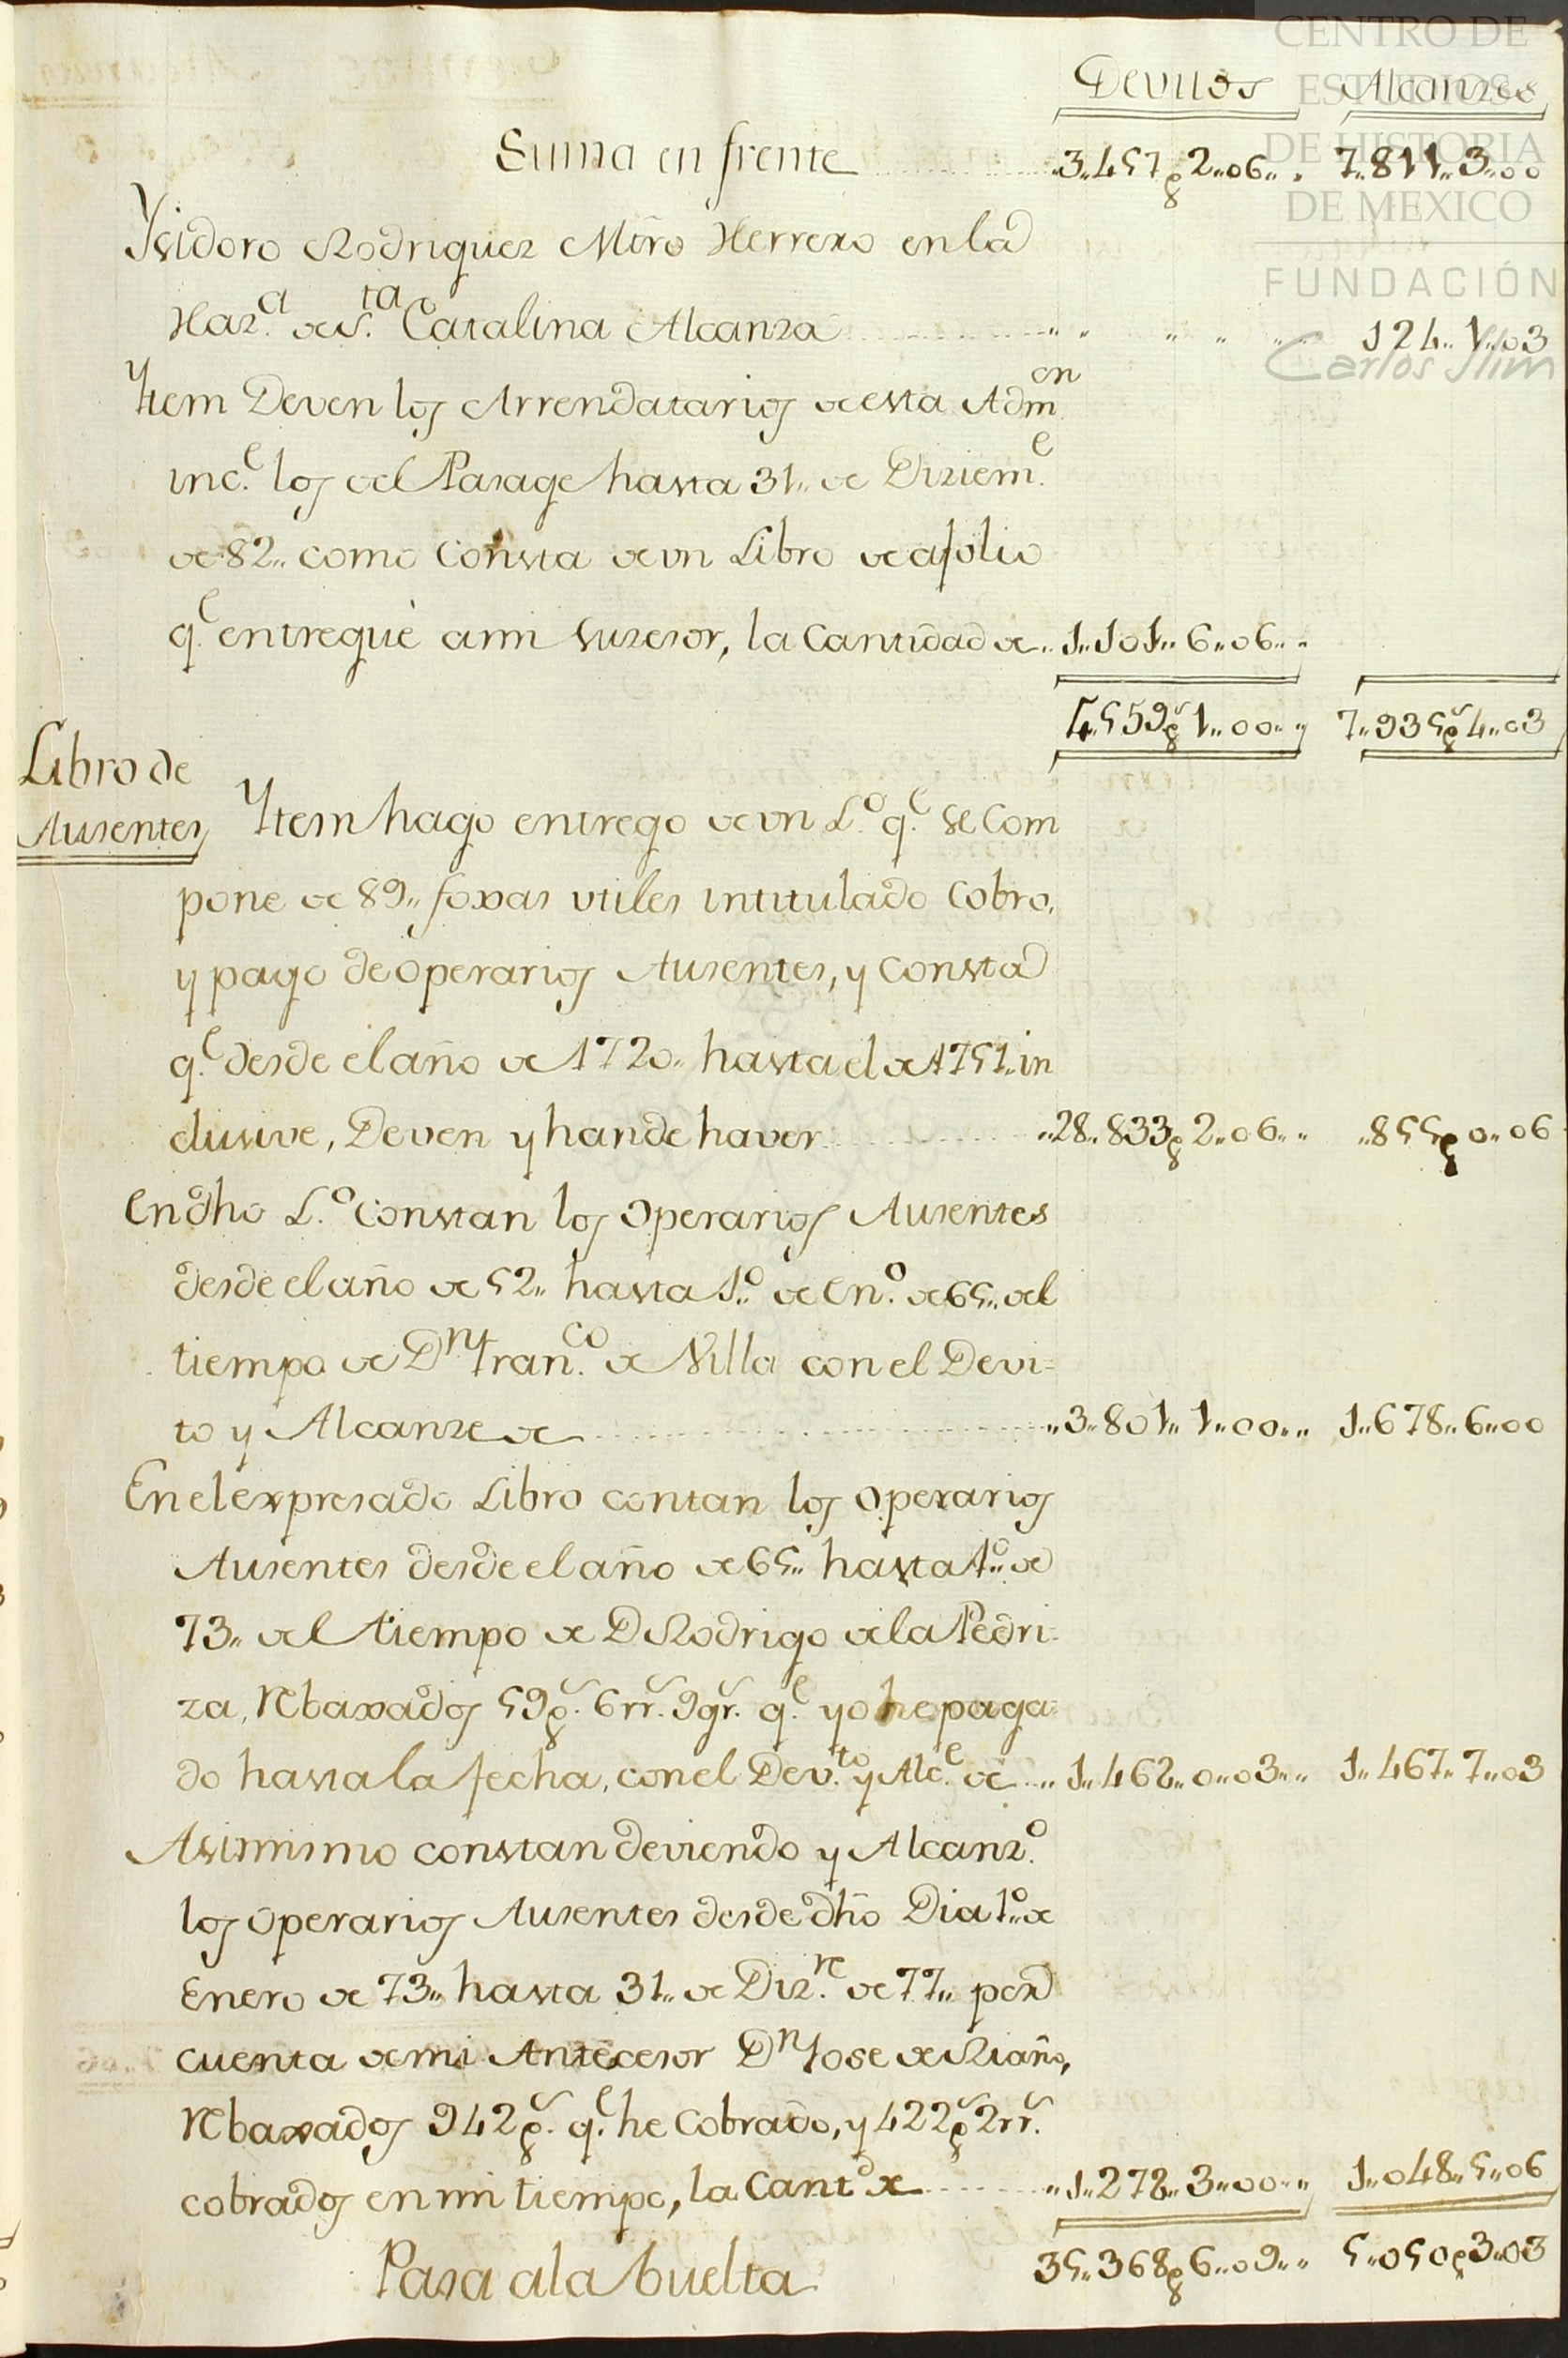 CENTRO DE
ESTUDIOS
DE HISTORIA
DE MEXICO
FUNDACIÓN
Carlos Slim
Devitos Alcanzes
Suma en frente 3,,457p 2,,06,, 7,,811,,3,,00
Ysidoro Rodriguez Mtro Herrero en la
Haz.a de S.ta Catalina Alcanza ,, ,, ,, ,, 124,,1,,03
Ytem Deven los Arrendatarios de esta Adm.on
inc.e los del Pasage hasta 31,, de Diziem.e
de 82,, como Consta de un Libro de afolio
q.e entregué a mi Suzesor, la Cantidad de,, 1,,101,,6,,06,,
4,,559ps 1,,00,, 7,,935ps 4,,03
Libro de
Ausentes Ytem hago entrego de un L.o q.e se Com
pone de 89,, foxas utiles intitulado Cobro,
y pago de operarios Ausentes, y Consta
q.e desde el año de 1720,, hasta el de 1751,, in
clusive, Deven y han de haver ,,28,,833p 2,,06,, ,,855p 0,,06
En dho L.o Constan los Operarios Ausentes
desde el año de 52,, hasta 1.o de En.o de 65,, del
tiempo de Dn Fran.co de Villa con el Devi=
to y Alcanze de ,,3,,801,,1,,00,, 1,,678,,6,,00
En el expresado Libro contan los Operarios
Ausentes desde el año de 65,, hasta 1.o de
73,, del tiempo de D Rodrigo de la Pedri-
za, Rebaxados 59ps. 6rrs. 9grs. q.e yo he paga-
do hasta la fecha, con el Dev.to y Alc.e de ,,1,,462,,0,,03,, 1,,467,,7,,03
Asimismo constan deviendo y Alcanz.o
los Operarios Ausentes desde dho Dia 1.o de
Enero de 73,, hasta 31,, de Diz.re de 77,, por
cuenta de mi Antecesor Dn Jose de Riaño,
Rebaxados 942ps. q.e he Cobrado, y 422ps 2rrs.
cobrados en mi tiempo, la Cantd de ,,1,,272,,3,,00,, 1,,048,,5,,06
Pasa ala buelta 35,,368p 6,,09,, 5,,050p 3,,03